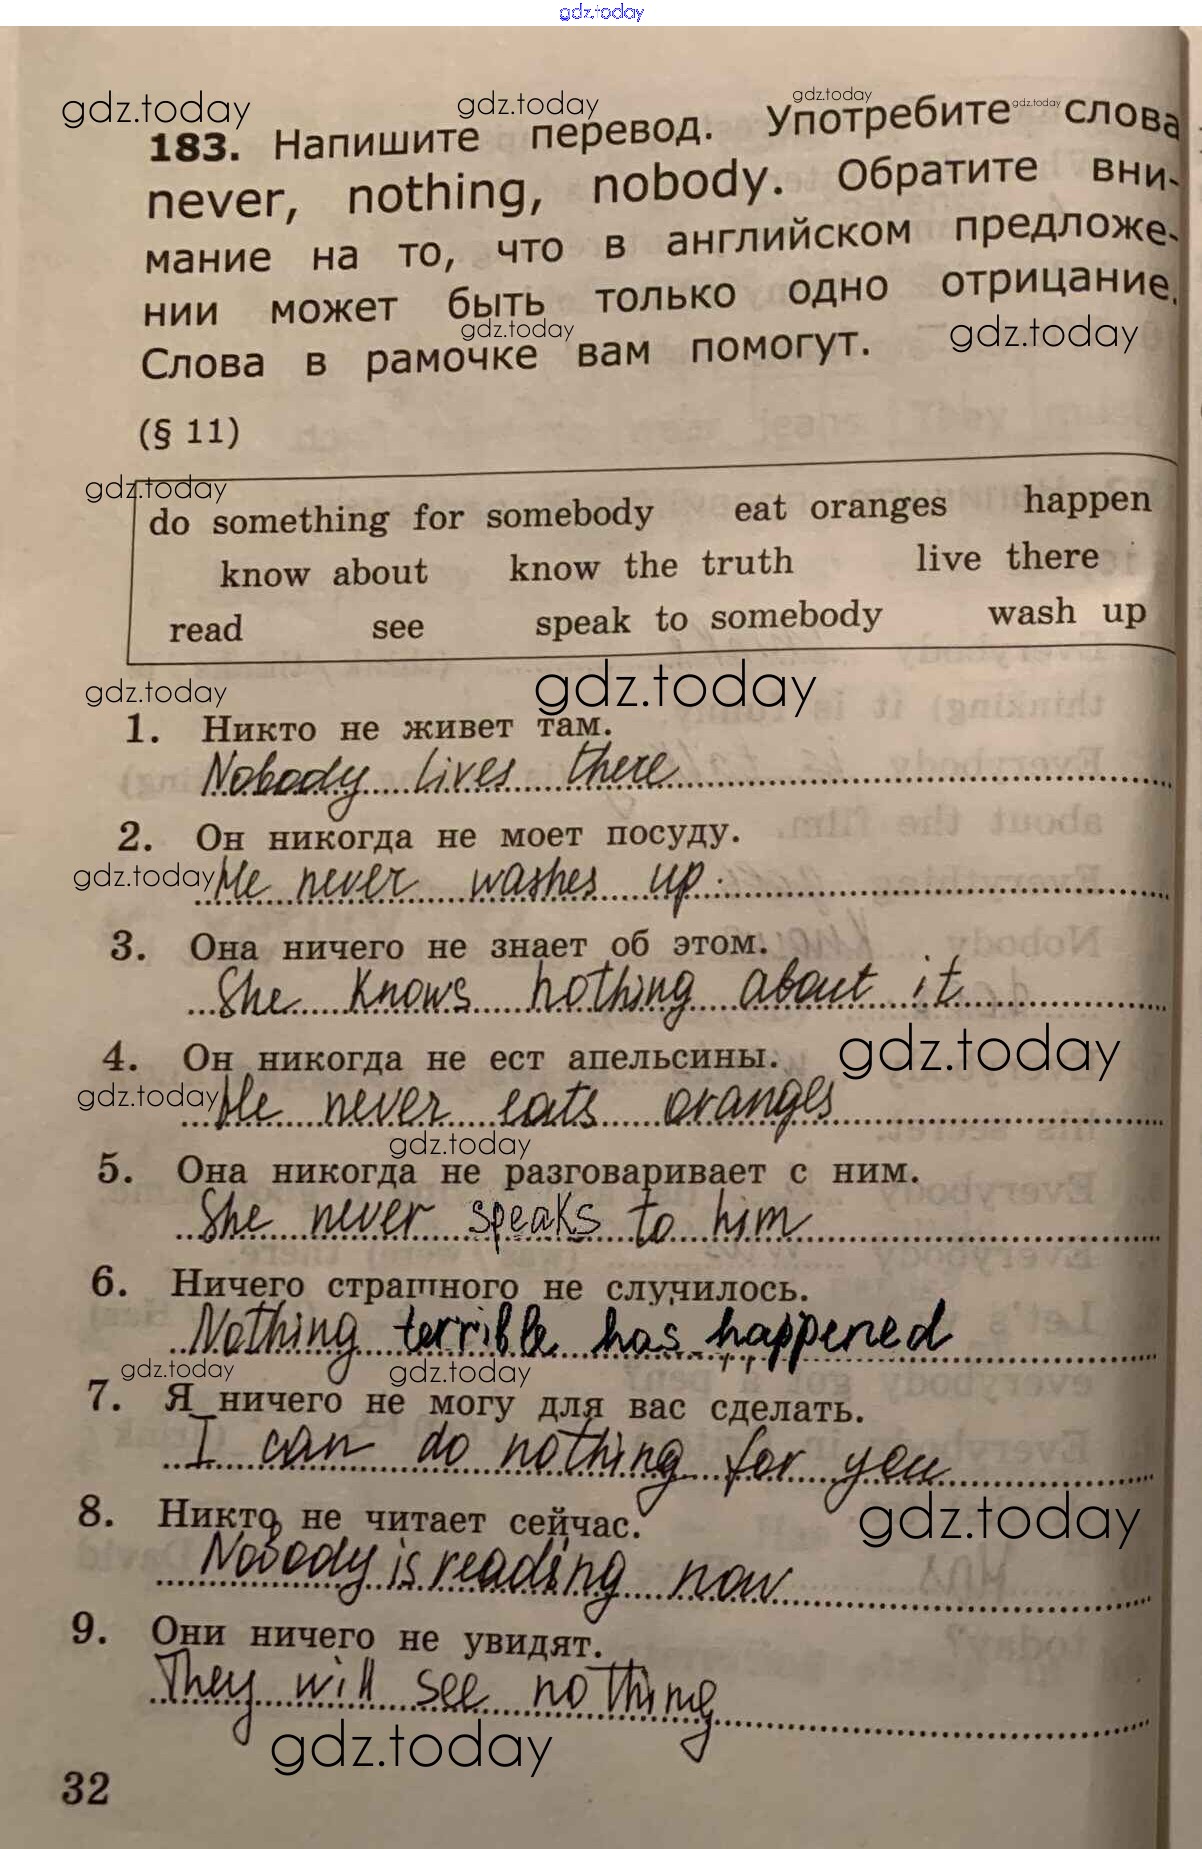 gdz.today
gdz.today gdz.today gdz.today gdz.today
183. Напишите перевод. Употребите слова
never, nothing, nobody. Обратите вни-
мание на то, что в английском предложе-
нии может быть только одно отрицание.
gdz.today gdz.today
Слова в рамочке вам помогут.
(§ 11)
gdz.today
do something for somebody eat oranges happen
know about know the truth live there
read see speak to somebody wash up
gdz.today gdz.today
1. Никто не живет там.
Nobody lives there
2. Он никогда не моет посуду.
gdz.today
He never washes up.
3. Она ничего не знает об этом.
She knows nothing about it
4. Он никогда не ест апельсины.
gdz.today
gdz.today
He never eats oranges
gdz.today
5. Она никогда не разговаривает с ним.
She never speaks to him
6. Ничего страшного не случилось.
Nothing terrible has happened
gdz.today gdz.today
7. Я ничего не могу для вас сделать.
I can do nothing for you
8. Никто не читает сейчас.
gdz.today
Nobody is reading now
9. Они ничего не увидят.
They will see nothing
gdz.today
32